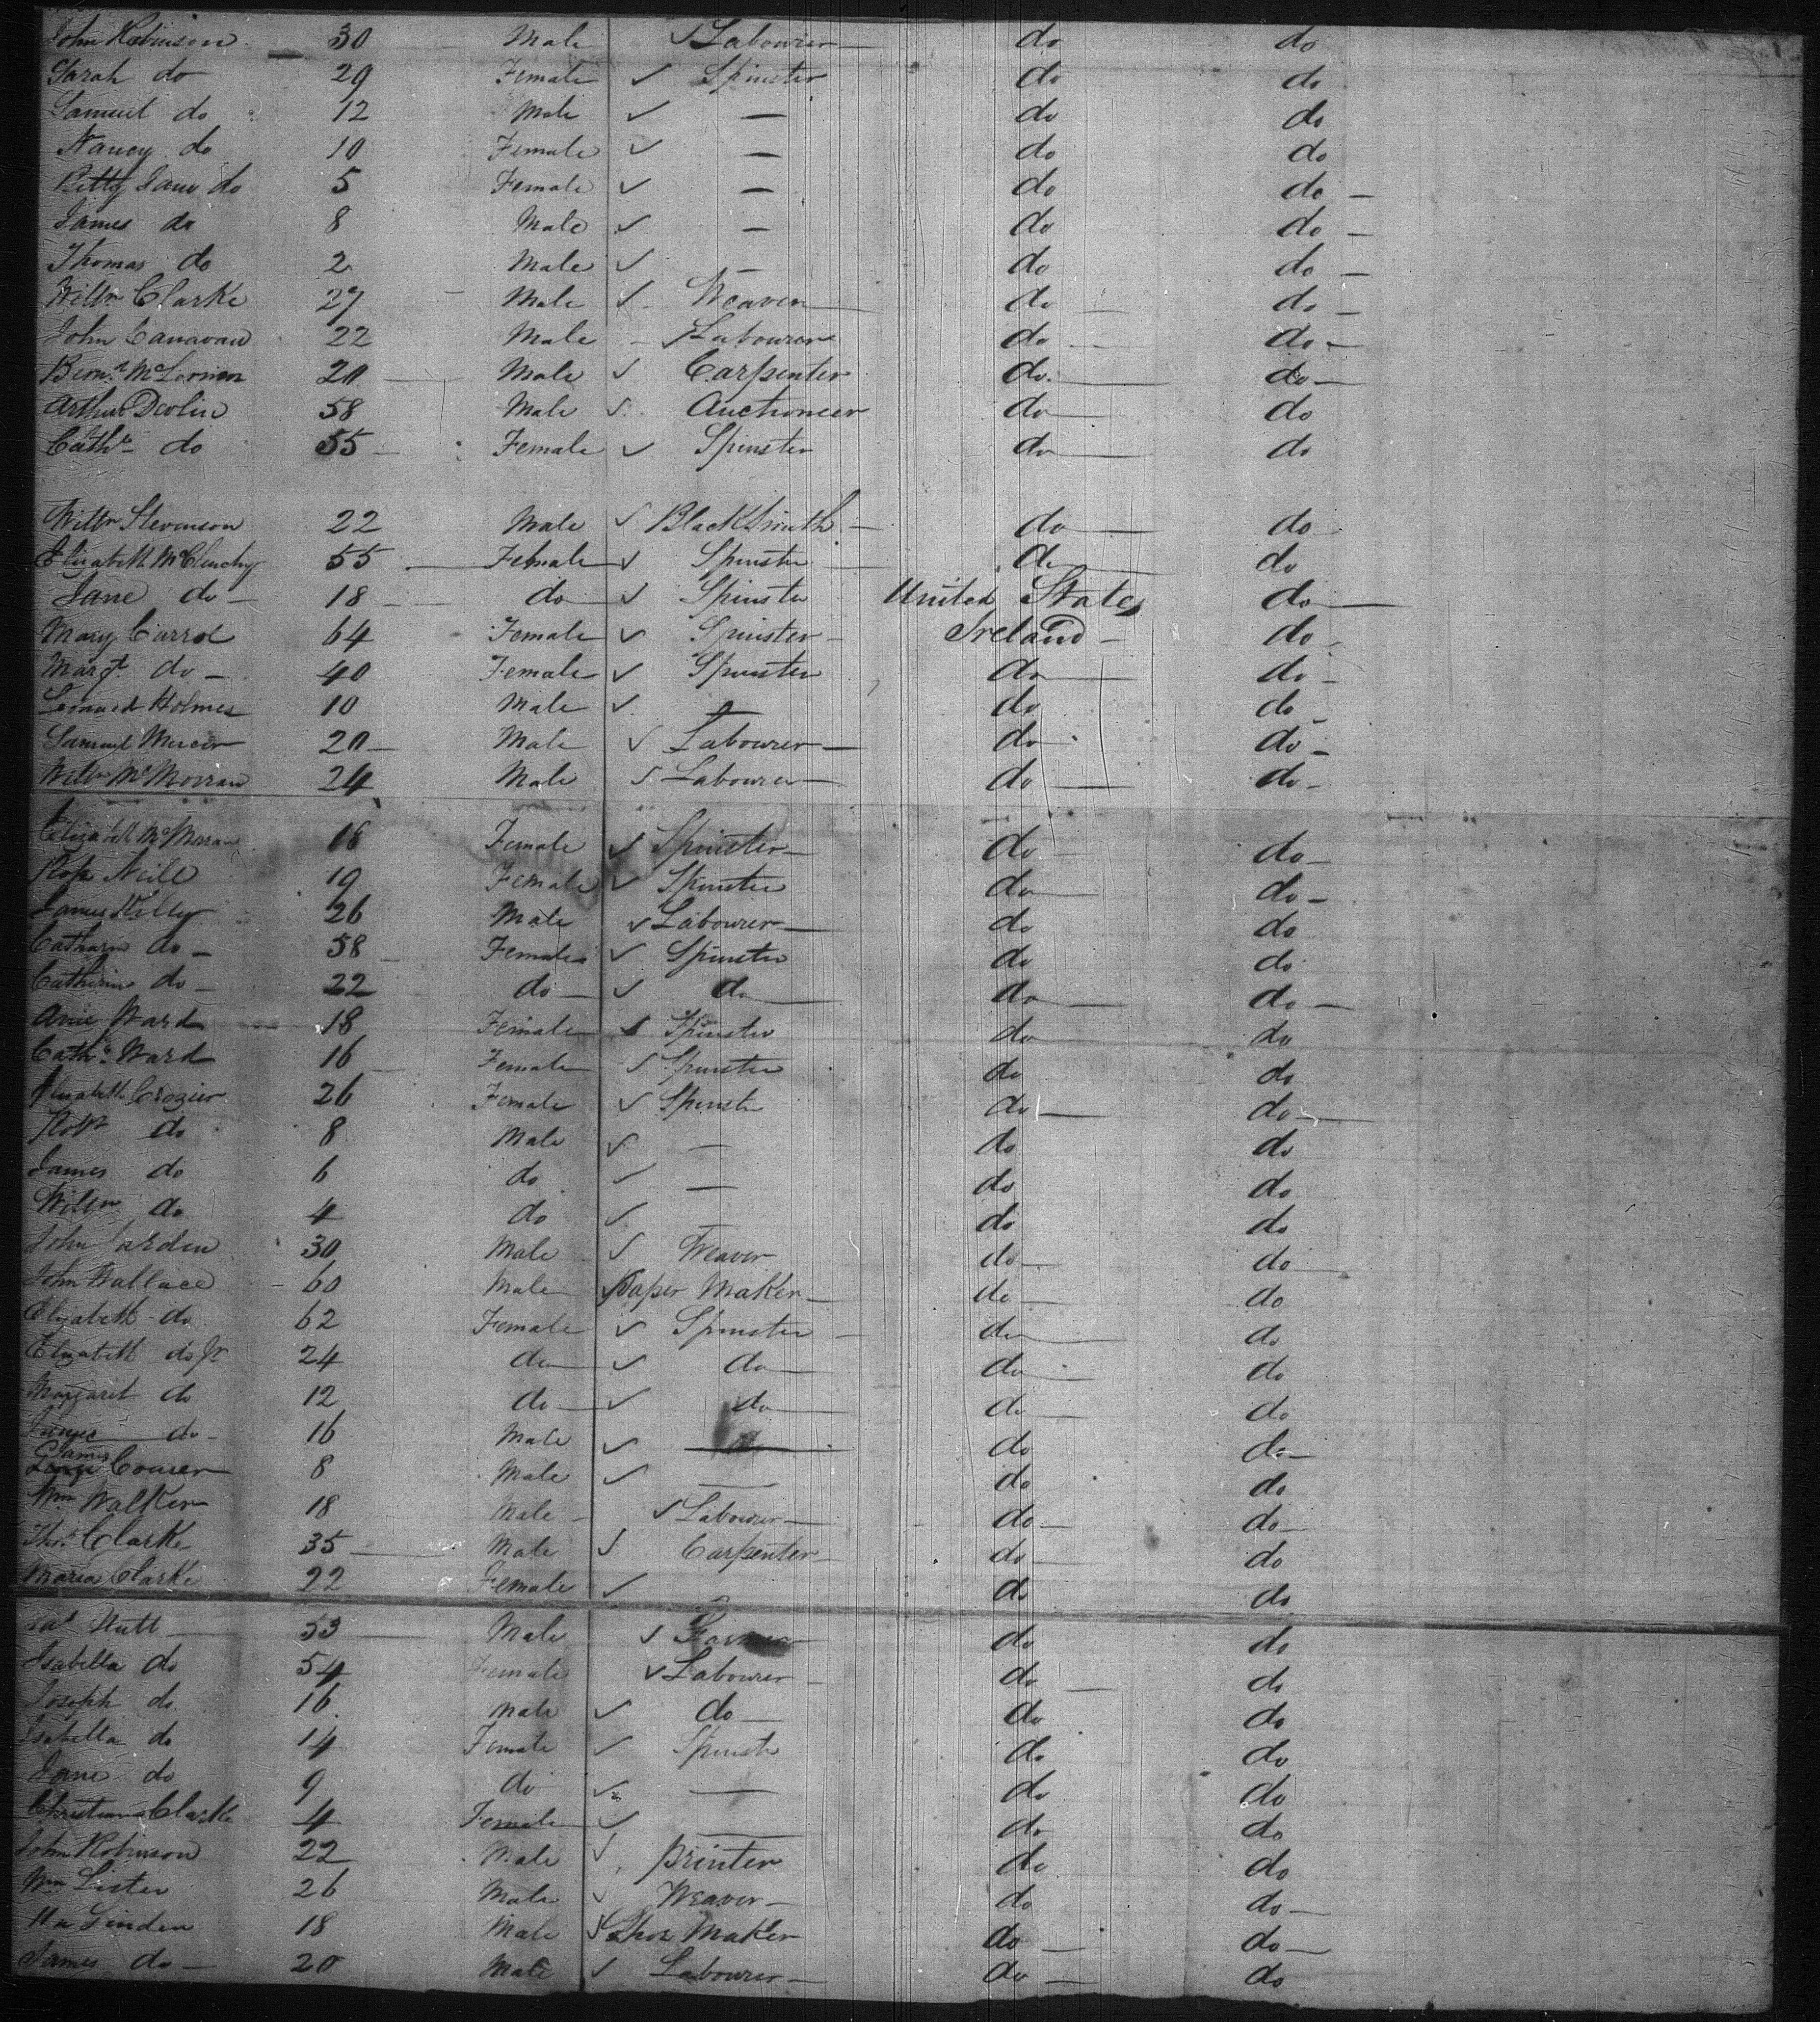 John Robinson 30 Male ✓ Labourer do do
Sarah do 29 Female ✓ Spinster do do
Samuel do 12 Male ✓ — do do
Nancy do 10 Female ✓ — do do
Betty Jane do 5 Female ✓ — do do —
James do 8 Male ✓ — do do —
Thomas do 2 Male ✓ — do do —
Willm Clarke 27 Male ✓ Weaver do do —
John Canavan 22 Male ✓ Labourer do do —
20 Male ✓ Carpenter do. do —
Arthur Devlin 58 Male ✓ Auctioneer do do
Cathe do 55 Female ✓ Spinster do do
Willm Stevenson 22 Male ✓ BlackSmith do do
Elizabeth McClinchy 55 Female ✓ Spinster do do
Jane do — 18 do ✓ Spinster United States do
Mary Carrol 64 Female ✓ Spinster Ireland — do
Margt do — 40 Female ✓ Spinster do do
Leonard Holmes 10 Male ✓ — do do
Samuel Mercer 20 Male ✓ Labourer do do —
Willm McMorran 24 Male ✓ Labourer do do —
Elizabeth McMorran 16 Female ✓ Spinster do do —
Neill 19 Female ✓ Spinster do do —
James Killy 26 Male ✓ Labourer do do
Catharine do — 58 Female ✓ Spinster do do
Catherine do — 22 do ✓ do do do —
Ann Ward 18 Female ✓ Spinster do do
Cathe Ward 16 Female ✓ Spinster do do
Elizabeth Crozier 26 Female ✓ Spinster do do
Robt do 8 Male ✓ — do do
James do 6 do ✓ — do do
Willm do 4 do ✓ — do do
John 30 Male ✓ Weaver do do
John Wallace 60 Male ✓ Paper Maker do do
Elizabeth do 62 Female ✓ Spinster do do
Elizabeth do Jr 24 do ✓ do do do
Margaret do 12 do ✓ do do do
do — 16 Male ✓ — do do
James 8 Male ✓ — do do
Wm Walker 18 Male ✓ Labourer do do
Thos Clarke 35 Male ✓ Carpenter do do
Maria Clarke 22 Female ✓ — do do
53 Male ✓ Farmer do do
Isabella do 54 Female ✓ Labourer do do
Joseph do 16 Male ✓ do do do
Isabella do 14 Female ✓ Spinster do do
Jane do 9 do ✓ — do do
Christiana Clarke 4 Female ✓ — do do
John Robinson 22 Male ✓ printer do do
Wm Lister 26 Male ✓ Weaver do do
Linden 18 Male ✓ Shoe Maker do do
James do — 20 Male ✓ Labourer do do